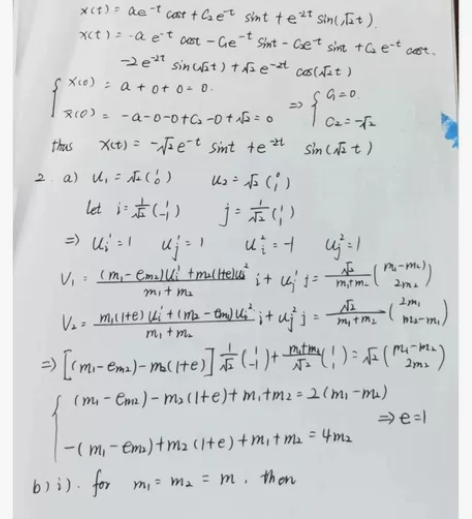 x(t) = ae^{-t} cost + C₂e^{-t} sint + e^{-2t} sin(√2 t).
ẋ(t) = -a e^{-t} cost - C₁e^{-t} sint - C₂e^{-t} sint + C₂ e^{-t} cost.
-2e^{-2t} sin(√2 t) + √2 e^{-2t} cos(√2 t)
{ x(0) = a + 0 + 0 = 0.
ẋ(0) = -a - 0 - 0 + C₂ - 0 + √2 = 0 ⇒ { C₁ = 0. C₂ = -√2
thus x(t) = -√2 e^{-t} sint + e^{-2t} sin(√2 t)
2. a) u₁ = √2 (1 0) u₂ = √2 (0 1)
let i = 1/√2 (1 -1) j = 1/√2 (1 1)
⇒ u_i^1 = 1 u_j^1 = 1 u_i^2 = -1 u_j^2 = 1
V₁ = ((m₁ - em₂)u_i^1 + m₂(1+e)u_i^2)/(m₁ + m₂) i + u_j^1 j = √2/(m₁+m₂) (m₁-m₂ 2m₂)
V₂ = (m₁(1+e) u_i^1 + (m₂ - em₁)u_i^2)/(m₁ + m₂) i + u_j^2 j = √2/(m₁+m₂) (2m₁ m₂-m₁)
⇒ [(m₁ - em₂) - m₂(1+e)] 1/√2 (1 -1) + (m₁+m₂)/√2 (1 1) = √2 (m₁-m₂ 2m₂)
{ (m₁ - em₂) - m₂(1+e) + m₁ + m₂ = 2(m₁ - m₂)
⇒ e = 1
-(m₁ - em₂) + m₂(1+e) + m₁ + m₂ = 4m₂
b) i). for m₁ = m₂ = m, then